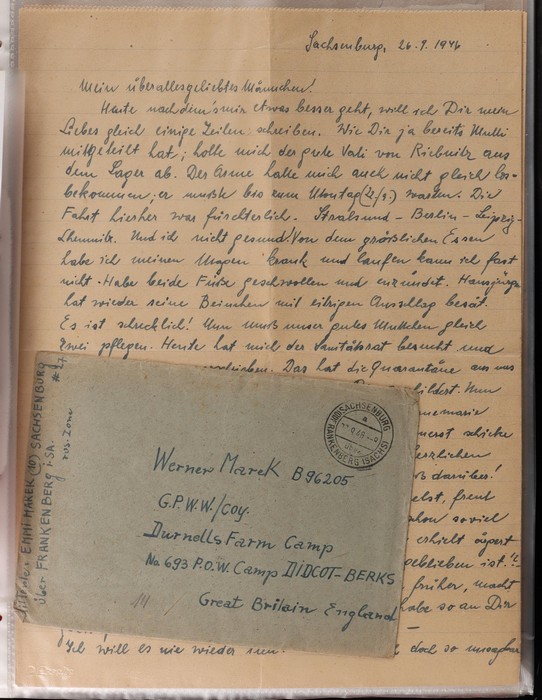 Sachsenburg, 26.9.1946
Mein überallesgeliebtes Männchen!
Heute nachdem's mir etwas besser geht, will ich Dir mein
Liebes gleich einige Zeilen schreiben. Wie Dir ja bereits Mutti
mitgeteilt hat, holte mich der gute Vati von Ribnitz aus
dem Lager ab. Der Arme hatte mich auch nicht gleich los-
bekommen, er mußte bis zum Montag warten. Die
Fahrt hierher war fürchterlich. Stralsund - Berlin - Leipzig -
Chemnitz. Und ich nicht gesund! Von dem gräßlichen Essen
habe ich meinen Magen krank und laufen kann ich fast
nicht. Habe beide Füße geschwollen und entzündet. Hansjürgen
hat wieder seine Beinchen mit eitrigen Ausschlag besät.
Es ist schrecklich! Nun muß unser gutes Muttchen gleich
zwei pflegen. Heute hat mich der Sanitätsrat besucht und
Das hat die Quarantäne aus uns
Nun
schicke
herzlichen
darüber!
freut
soviel
erhielt
geblieben ist!
früher, macht
habe so an Dir
Ich will es nie wieder tun. doch so
Emmi Marek (10) SACHSENBURG
über FRANKENBERG i. SA.
russ. Zone
SACHSENBURG
FRANKENBERG (SACHS)
a
Werner Marek B96205
G.P.W.W./Coy.
Durnells Farm Camp
No. 693 P.O.W. Camp DIDCOT-BERKS
Great Britain England